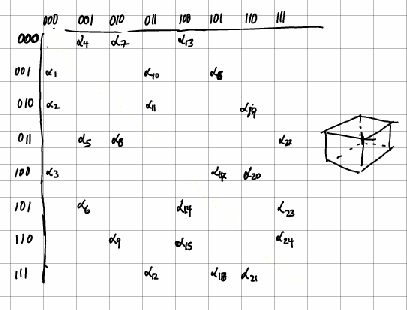 000 001 010 011 100 101 110 111
000 α4 α7 α13
001 α1 α10
010 α2 α11
011 α5 α8 α22
100 α3 α17 α20
101 α6 α14 α23
110 α9 α15 α24
111 α12 α18 α21